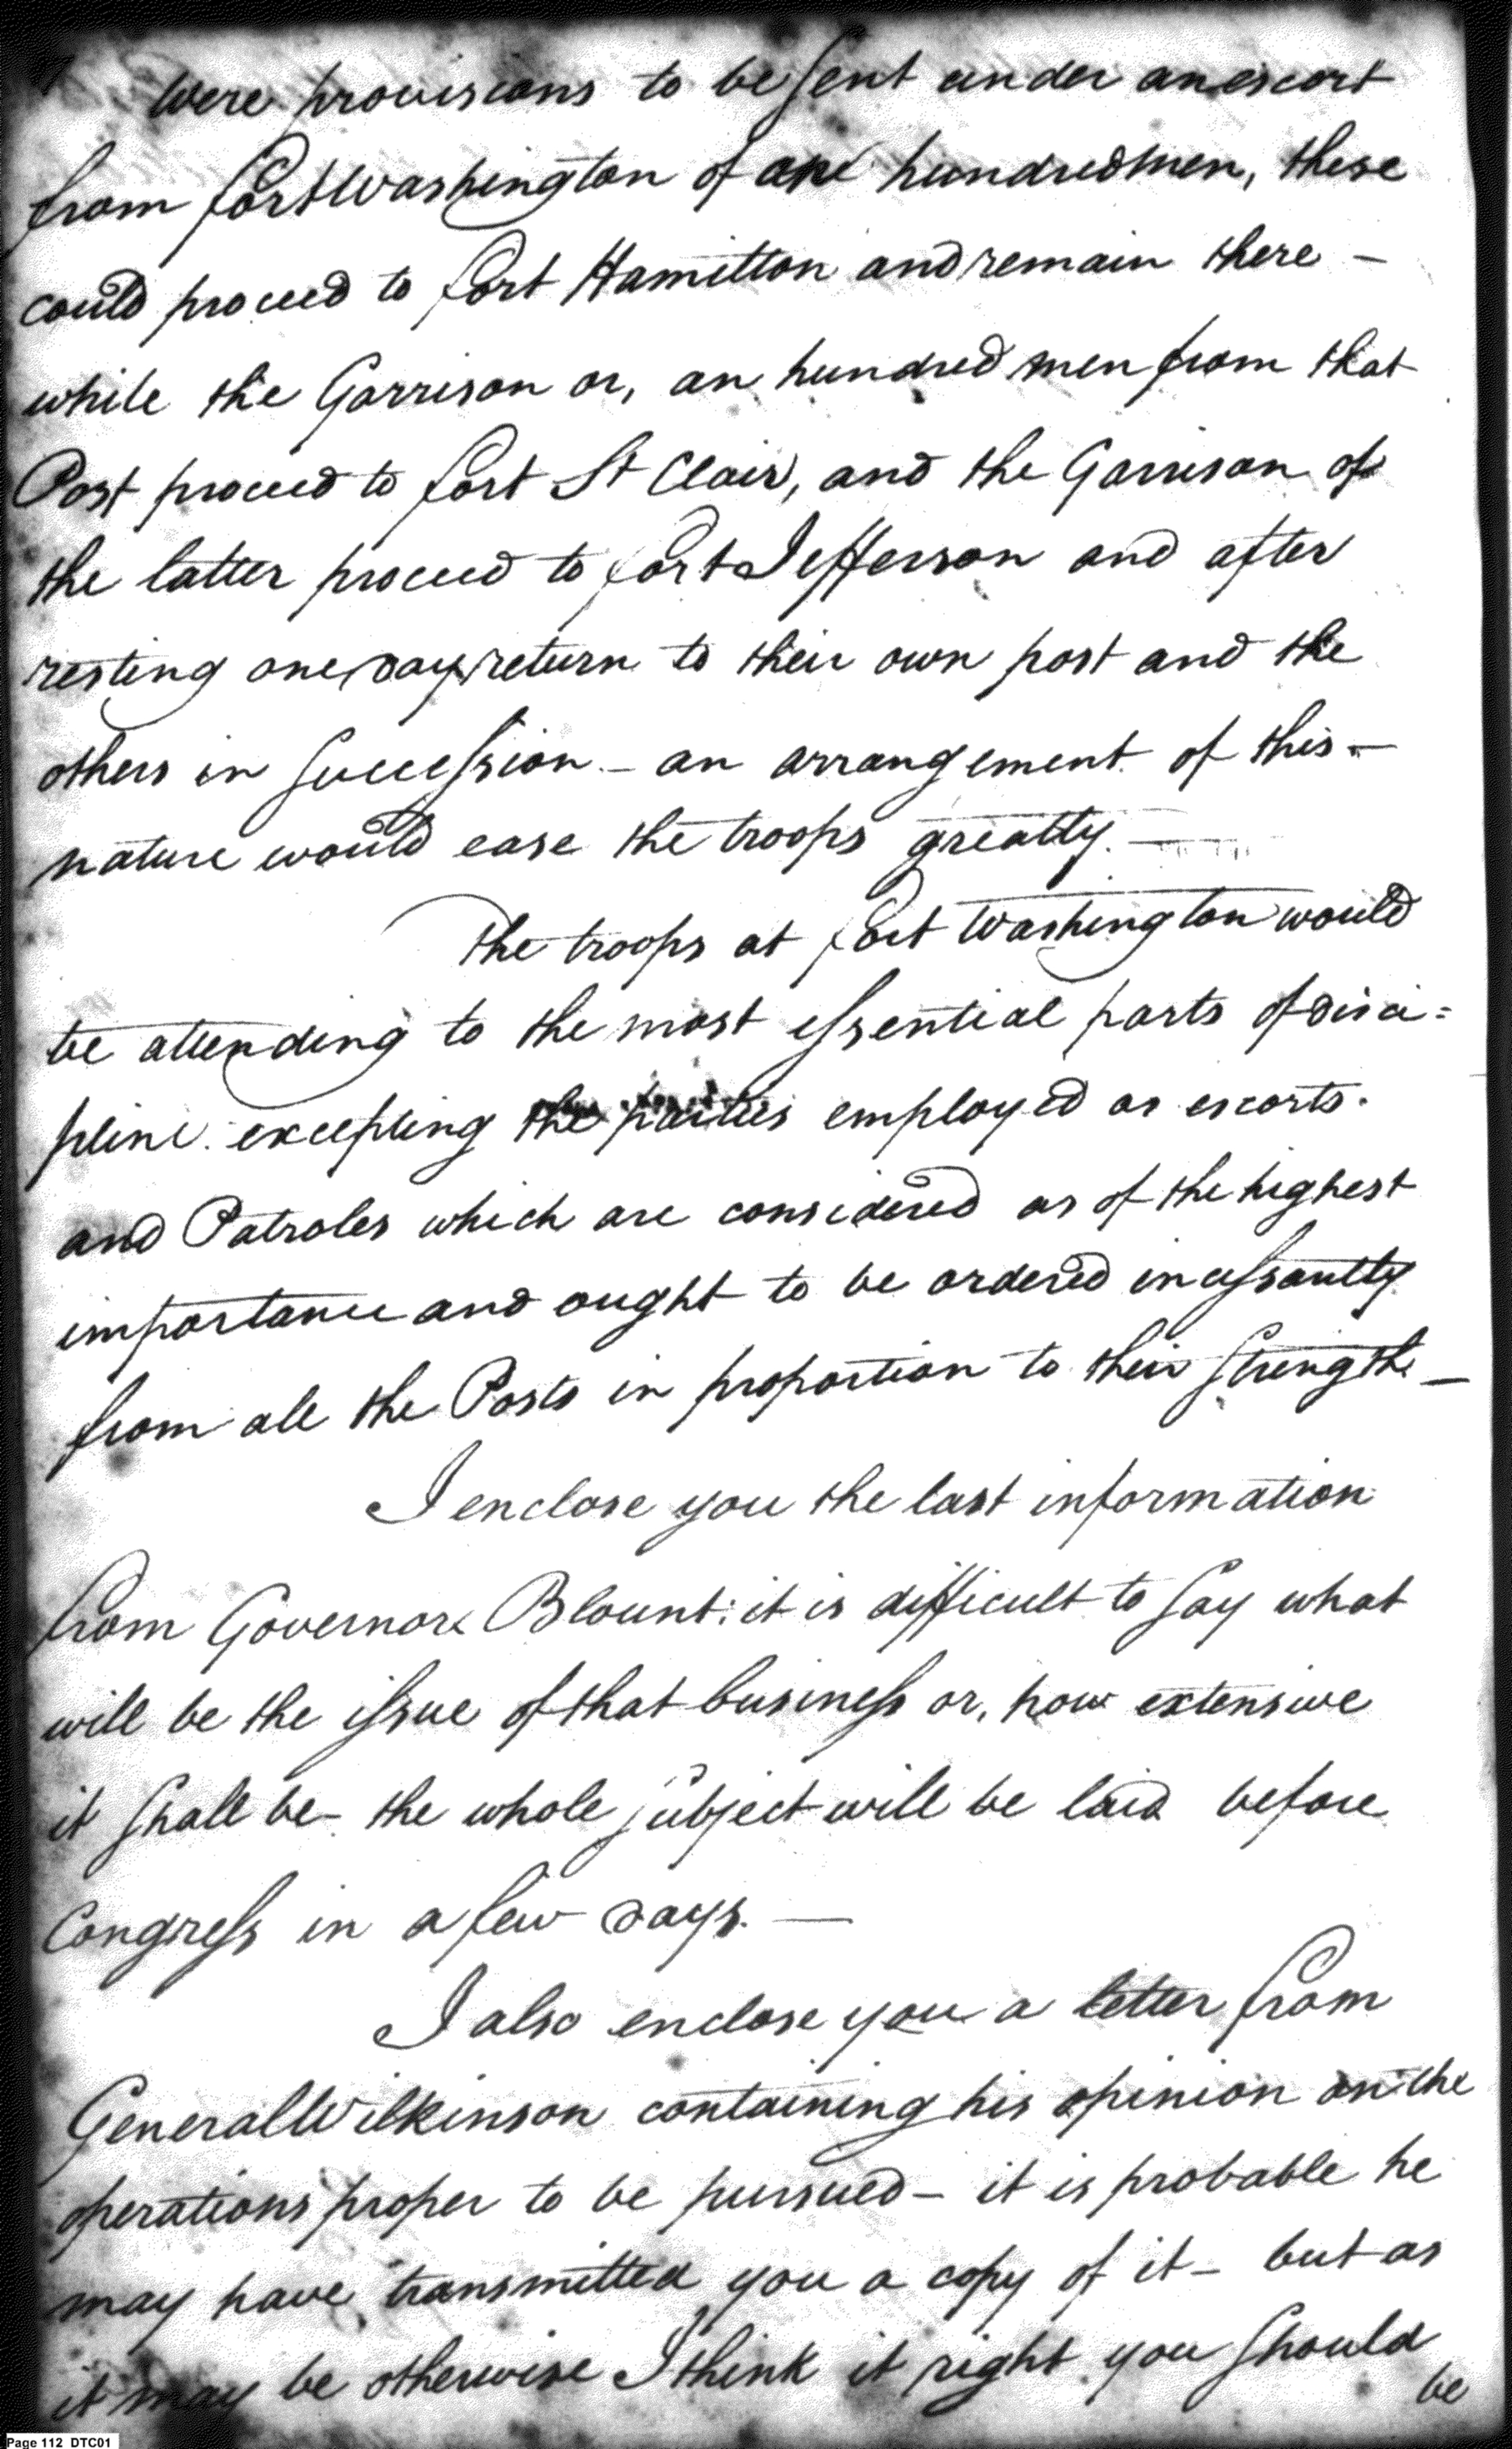 Were provisions to be sent under an escort
from fort Washington of one hundred men, these
could proceed to fort Hamilton and remain there —
while the Garrison or, an hundred men from that
Post proceed to fort St Clair, and the Garrison of
the latter proceed to fort Jefferson and after
resting one day return to their own post and the
others in succession — an arrangement of this —
nature would ease the troops greatly. —
The troops at fort Washington would
be attending to the most essential parts of disci=
pline. excepting the parties employed as escorts.
and Patroles which are considered as of the highest
importance and ought to be ordered incessantly
from all the Posts in proportion to their strength —
I enclose you the last information
from Governor Blount: it is difficult to say what
will be the issue of that business or, how extensive
it shall be — the whole subject will be laid before
Congress in a few days. —
I also enclose you a letter from
General Wilkinson containing his opinion on the
operations proper to be pursued — it is probable he
may have transmitted you a copy of it — but as
it may be otherwise I think it right you should
be
Page 112 DTC01